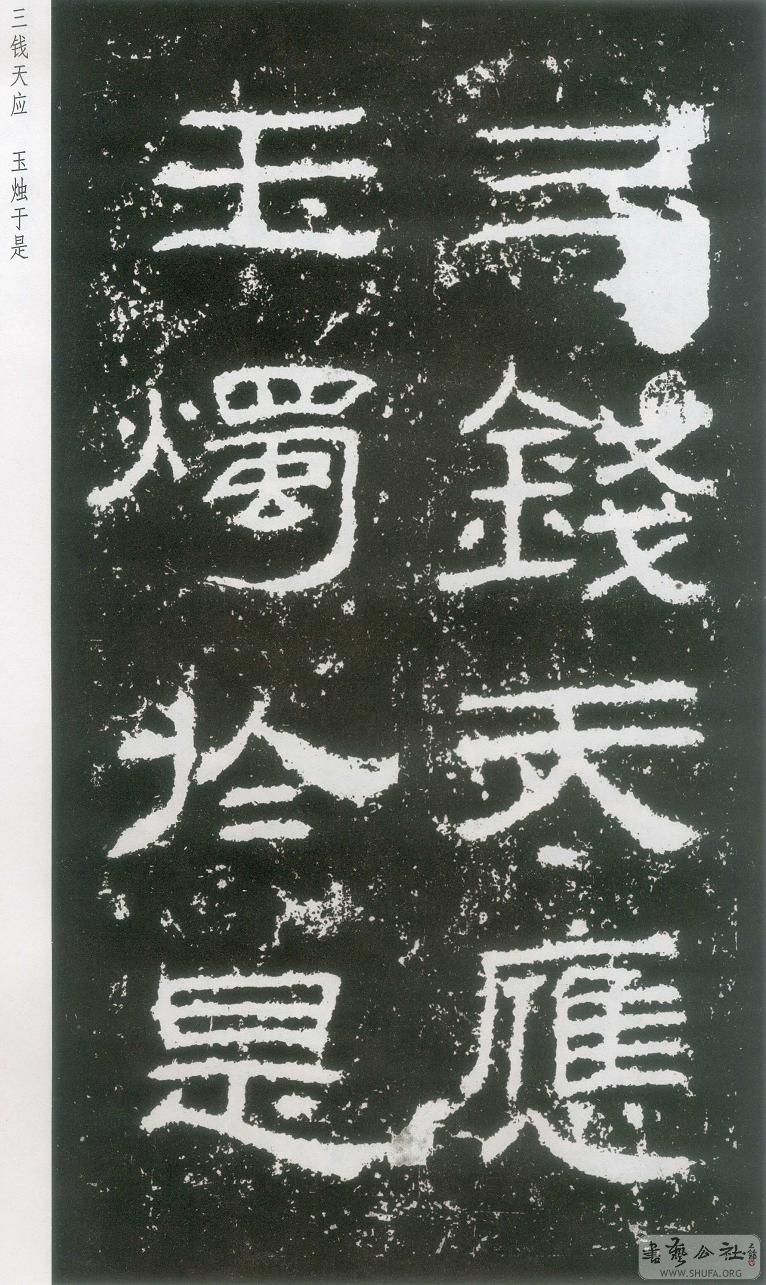 三钱天应 玉烛于是
三錢天應
玉燭於是
書藝公社
WWW.SHUFA.ORG